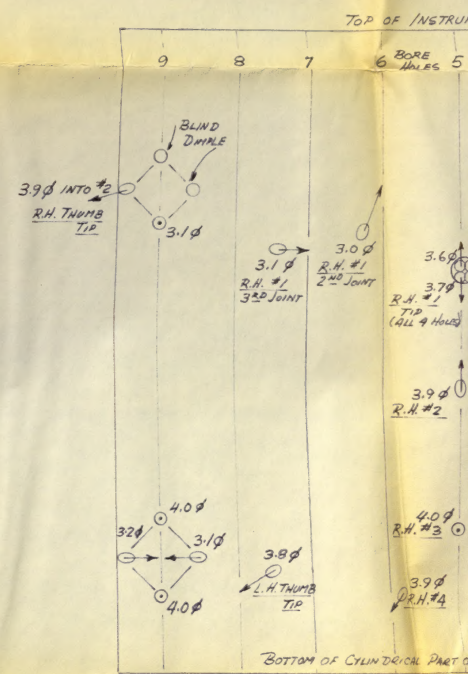 TOP OF INSTRUM
9 8 7 6 BORE HOLES 5
BLIND
DIMPLE
3.9ϕ INTO #2
R.H. THUMB
TIP
3.1ϕ
3.1ϕ
R.H. #1
3RD JOINT
3.0ϕ
R.H. #1
2ND JOINT
3.6ϕ
3.7ϕ
R.H. #1
TIP
(ALL 4 HOLES)
3.9ϕ
R.H. #2
4.0ϕ
3.2ϕ
3.1ϕ
4.0ϕ
3.8ϕ
L.H. THUMB
TIP
4.0ϕ
R.H. #3
3.9ϕ
R.H. #4
BOTTOM OF CYLINDRICAL PART O